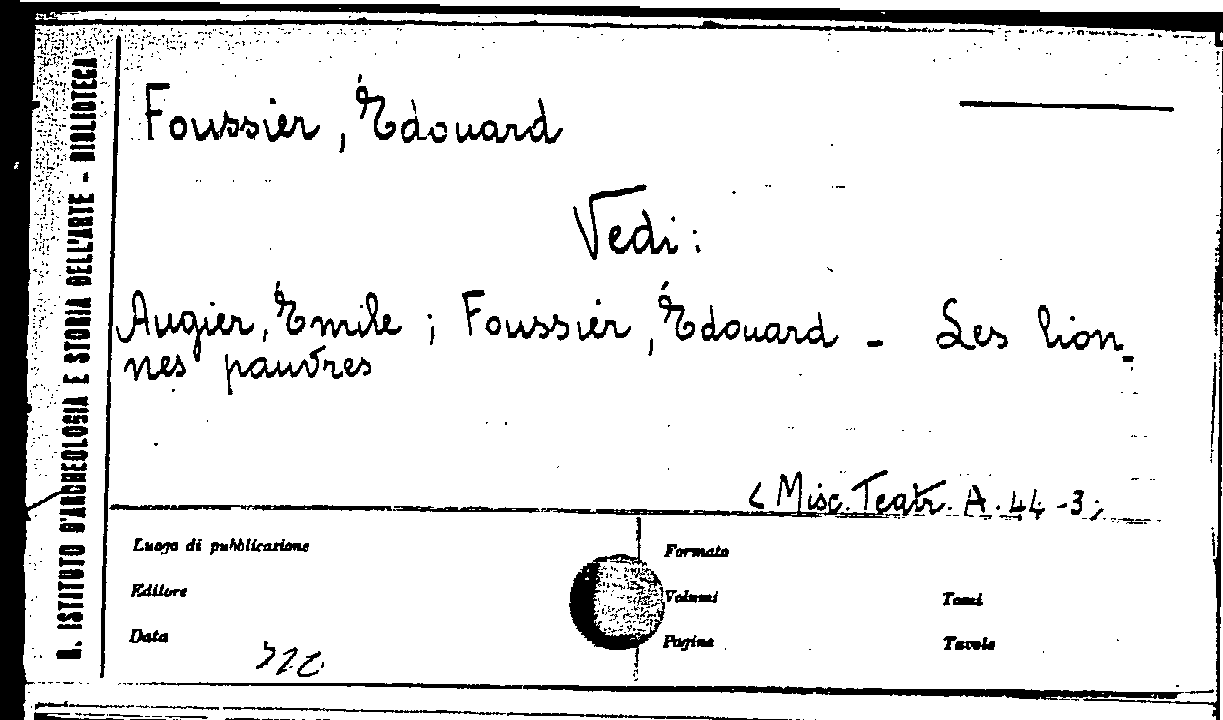 R. ISTITUTO D'ARCHEOLOGIA E STORIA DELL'ARTE - BIBLIOTECA
Foussier, Édouard
Vedi:
Augier, Émile ; Foussier, Édouard - Les lion_
nes pauvres
(Misc. Teatr. A. 44-3;
Luogo di pubblicazione
Formato
Editore
Volumi
Tomi
Data
Pagine
Tavole